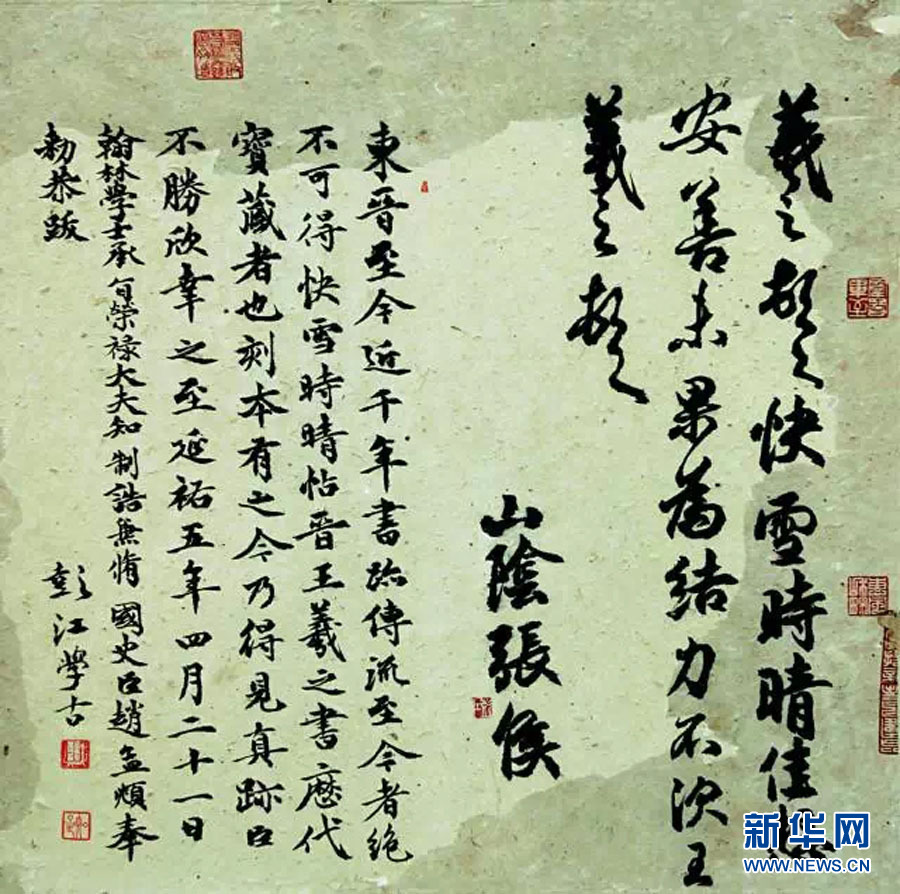 羲之頓首快雪時晴佳想
安善未果為結力不次王
羲之頓首
山陰張侯
東晉至今近千年書跡傳流至今者絕
不可得快雪時晴帖晉王羲之書歷代
寶藏者也刻本有之今乃得見真跡臣
不勝欣幸之至延祐五年四月二十一日
翰林學士承旨榮祿大夫知制誥兼脩國史臣趙孟頫奉
勅恭跋
彭江學古
新华网
WWW.NEWS.CN